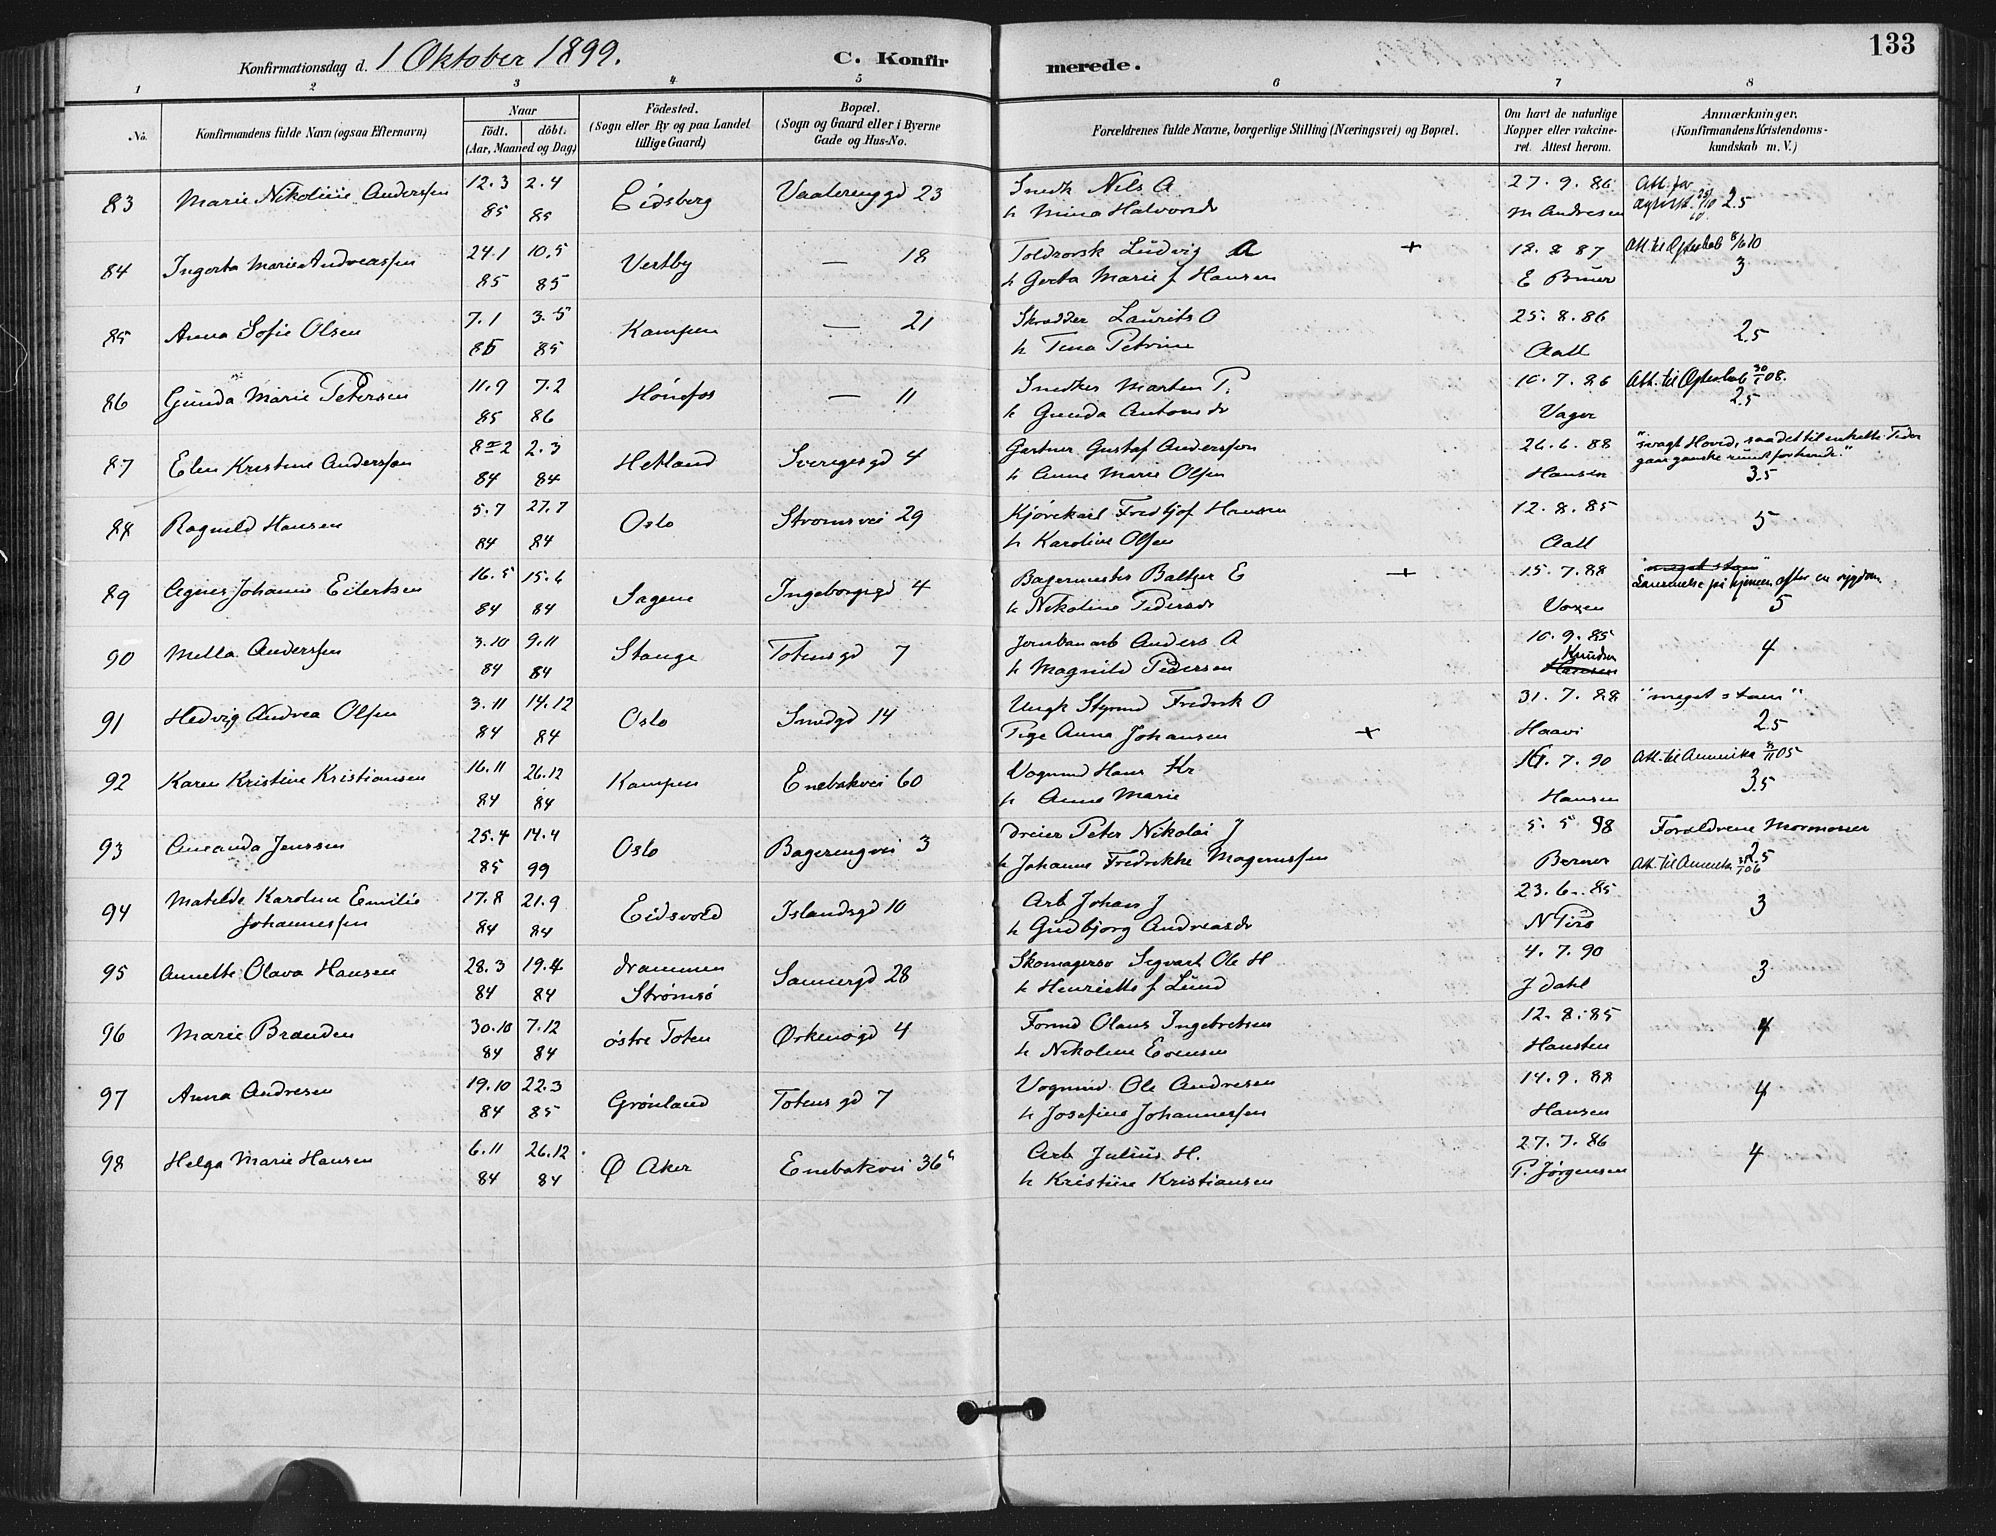 Konfirmationsdag d. 1 Oktober 1899.
C. Konfirmerede.
133
1 2 3 4 5 6 7 8
No.
Konfirmandens fulde Navn (ogsaa Efternavn)
Naar
født. døbt.
(Aar, Maaned og Dag)
Födested.
(Sogn eller By og paa Landet
tillige Gaard)
Bopæl.
(Sogn og Gaard eller i Byerne
Gade og Hus-No.
Forældrenes fulde Navne, borgerlige Stilling (Næringsvei) og Bopæl.
Om havt de naturlige
Kopper eller vakcine-
ret. Attest herom.
Anmærkninger.
(Konfirmandens Kristendoms-
kundskab m. V.)
83 Marie Nikoline Anderssen 12.3 85 2.4 85 Eidsberg Vaalerenggd 23
Snedk Nils A 27.9.86 Att. for
h Mina Halvorsdr M Andresen 2.5
84 Ingerta Marie Andreassen 24.1 85 10.5 85 Vestby — 18
Toldrorsk Ludvig A + 18.8.87 Att. til Ægteskab 8/6 10
h Gerta Marie f Hansen E Bruer 3
85 Anna Sofie Olsen 7.1 85 3.5 85 Kampen — 21
Skrædder Laurits O 25.8.86 2.5
h Tina Petrine Aall
86 Gunda Marie Petersen 11.9 85 7.2 86 Hönefos — 11
Snedker Marten P. 10.7.86 Att. til Ægteskab 30/1 08.
h Gunda Antonsdr Vager 2.5
87 Elen Kristine Anderssen 8 2 84 2.3 84 Hetland Sverigesgd 4
Gartner Gustaf Andersson 26.6.88 "svagt Hoved, saa det til enkelte Tider
h Anne Marie Olsen Hansen gaar ganske rundt for hende." 3.5
88 Ragnild Hansen 5.7 84 27.7 84 Oslo Strømsvei 29
Kjørekarl Fredtjof Hansen 12.8.85 5
h Karoline Olsen Aall
89 Agnes Johanne Eilertsen 16.5 84 15.6 84 Sagene Ingeborgsgd 4
Bagermester Baltzer E + 15.7.88 "meget stam"
h Nikoline Pedersdr Voxen Lammelse på hjernen efter en sygdom 5
90 Mella Anderssen 3.10 84 9.11 84 Stange Totensgd 7
Jernbanarb Anders A 10.9.85 4
h Magnild Pedersen Knudsen Hansen
91 Hedvig Andrea Olsen 3.11 84 14.12 84 Oslo Smedgd 14
Ungk Styrmd Fredrik O 31.7.88 "meget stam"
Pige Anna Johansen + Haavi 2.5
92 Karen Kristine Kristiansen 16.11 84 26.12 84 Kampen Enebakvei 60
Vognmd Hans Kr .7.90 Att. til Amerika 05
h Anne Marie Hansen 3.5
93 Amanda Jenssen 25.4 85 14.4 99 Oslo Bagerengvei 3
Dreier Peter Nikolai J 5.5 98 Forældrene Mormoner
h Johanne Fredrikke Magnussen Berner Att. til Amerika 06 2.5
94 Matilde Karoline Emilie Johannessen 17.8 84 21.9 84 Eidsvold Islandsgd 10
Arb Johan J 23.6.85 3
h Gudbjørg Andreasdr N
95 Annette Olava Hansen 28.3 84 19.4 84 Drammen Strømsö Sannergd 28
Skomagersv Segvart Ole H 4.7.90 3
h Henriette f Lund J Dahl
96 Marie Brænden 30.10 84 7.12 84 östre Toten Ørkenøgd 4
Formd Olaus Ingebretsen 12.8.85 4
h Nikoline Evensen Hansten
97 Anna Andresen 19.10 84 22.3 85 Grönland Totensgd 7
Vognmd Ole Andresen 14.9.88 4
h Josefine Johannessen Hansen
98 Helga Marie Hansen 6.11 84 26.12 84 Ø Aker Enebakvei 36
Arb Julius H. 27.7.86 4
h Kristine Kristiansen P. Jørgensen